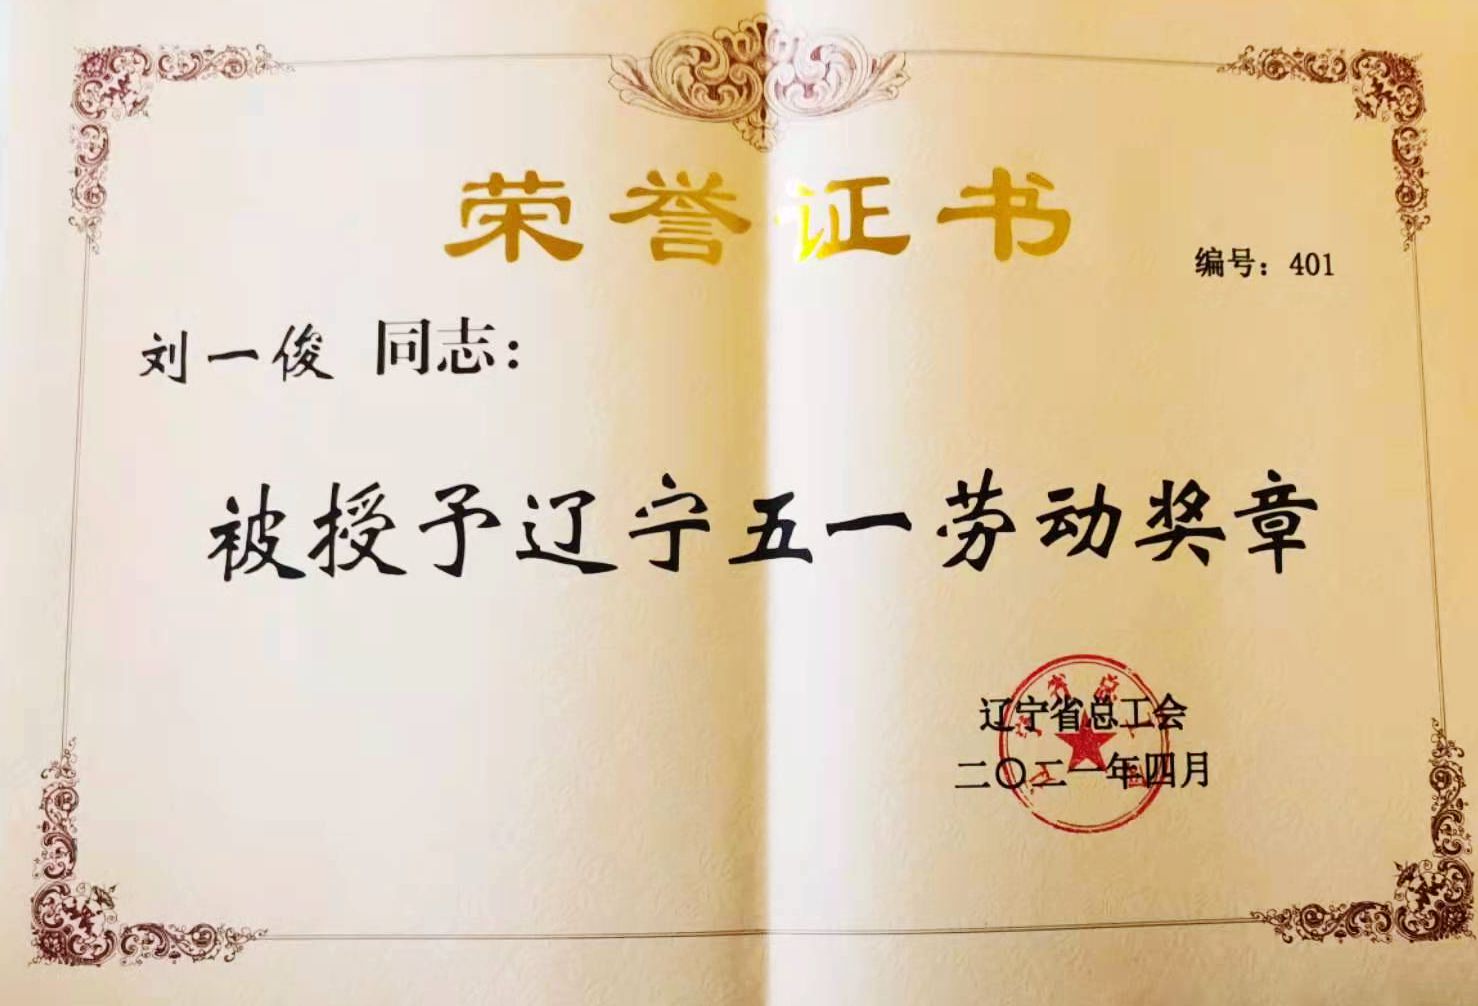 荣誉证书
编号：401
刘一俊 同志：
被授予辽宁五一劳动奖章
辽宁省总工会
二〇二一年四月